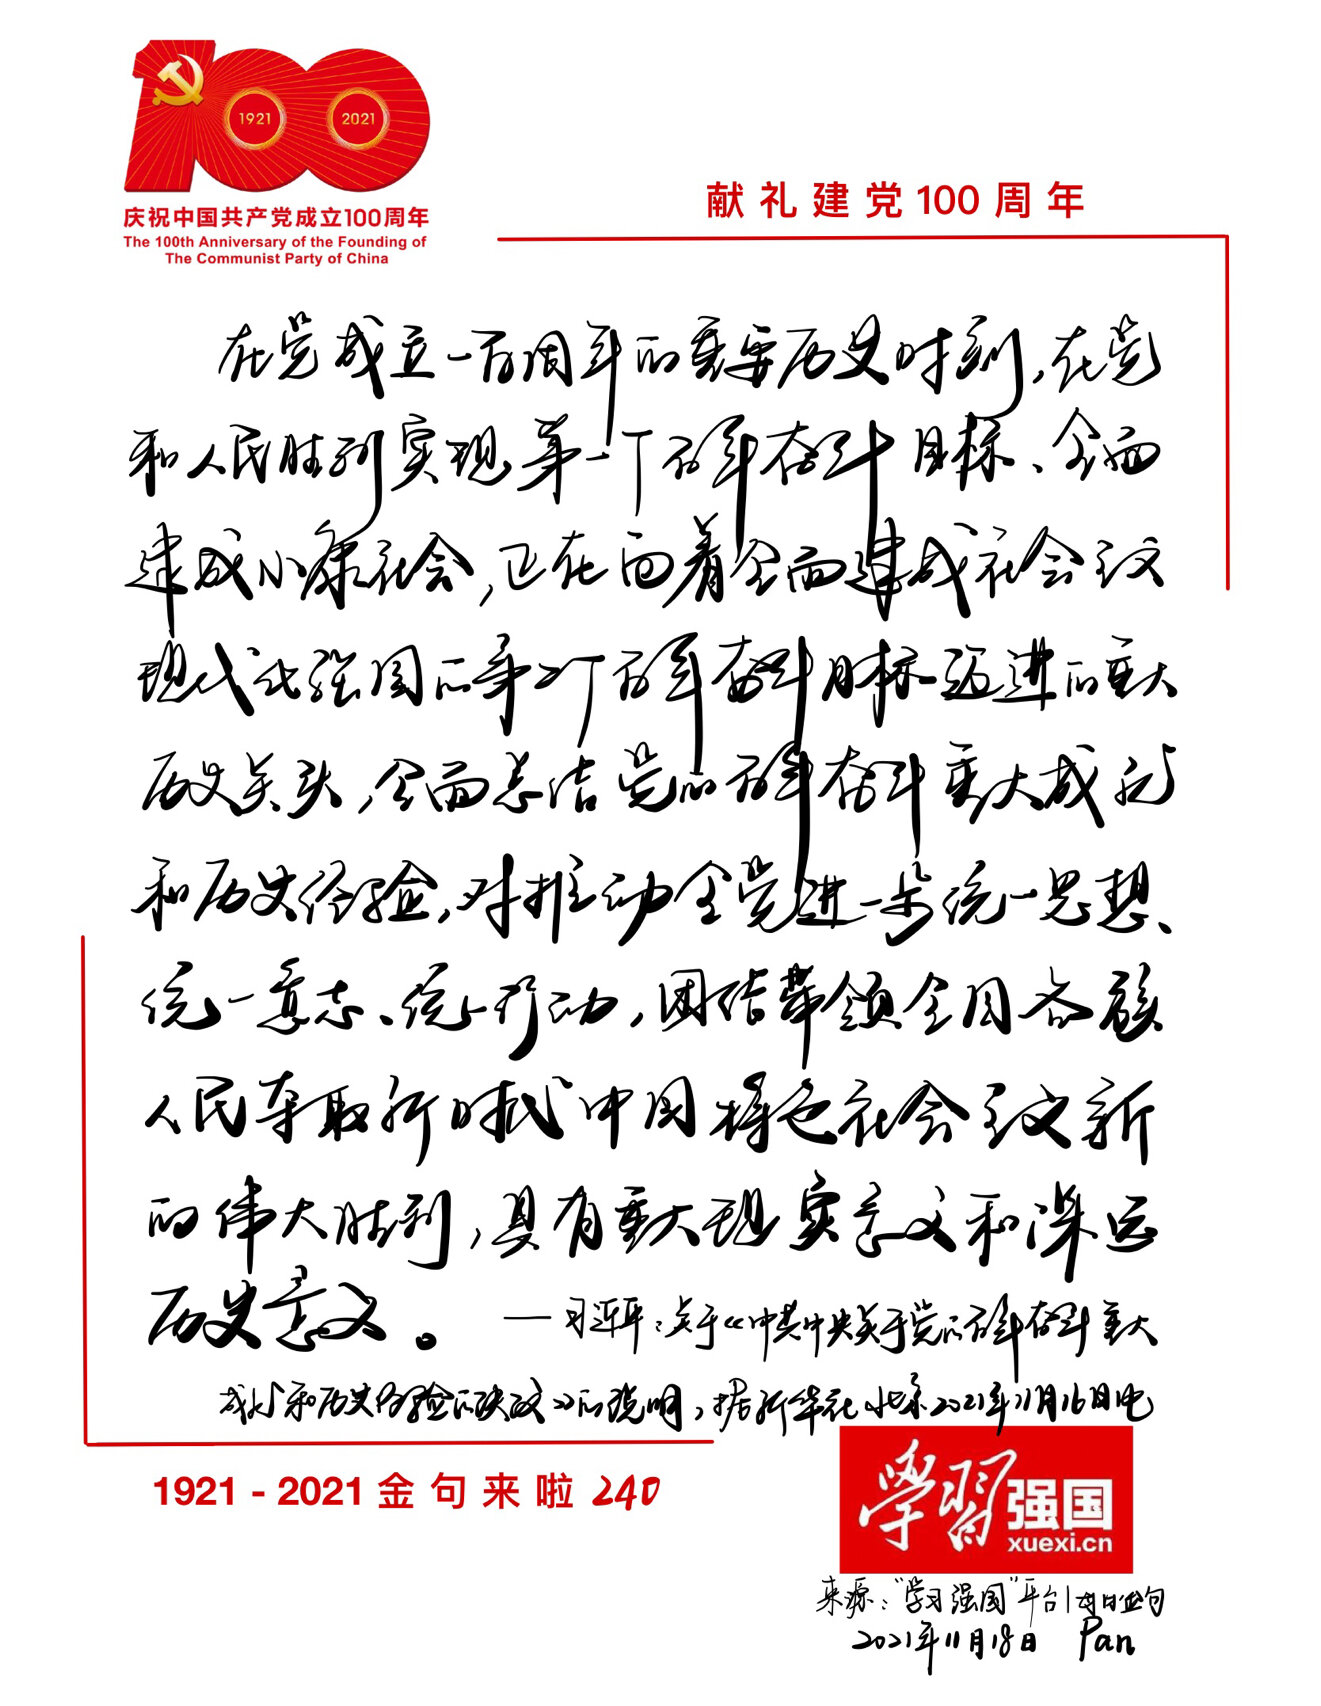 1921
2021
庆祝中国共产党成立100周年
The 100th Anniversary of the Founding of
The Communist Party of China
献礼建党100周年
在党成立一百周年的重要历史时刻，在党
和人民胜利实现第一个百年奋斗目标、全面
建成小康社会，正在向着全面建成社会主义
现代化强国的第二个百年奋斗目标迈进的重大
历史关头，全面总结党的百年奋斗重大成就
和历史经验，对推动全党进一步统一思想、
统一意志、统一行动，团结带领全国各族
人民夺取新时代中国特色社会主义新
的伟大胜利，具有重大现实意义和深远
历史意义。
——习近平：关于《中共中央关于党的百年奋斗重大
成就和历史经验的决议》的说明，据新华社北京2021年11月16日电
1921-2021金句来啦240
学习强国
xuexi.cn
来源：“学习强国”平台|每日金句
2021年11月18日 Pan